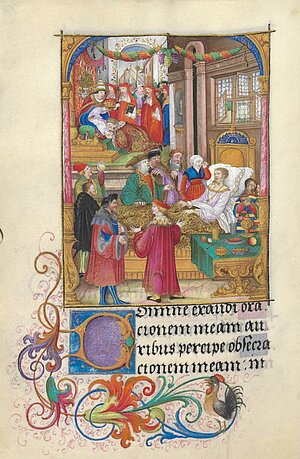 Domine exaudi ora
cionem meam au
ribus percipe obsecra
cionem meam. in